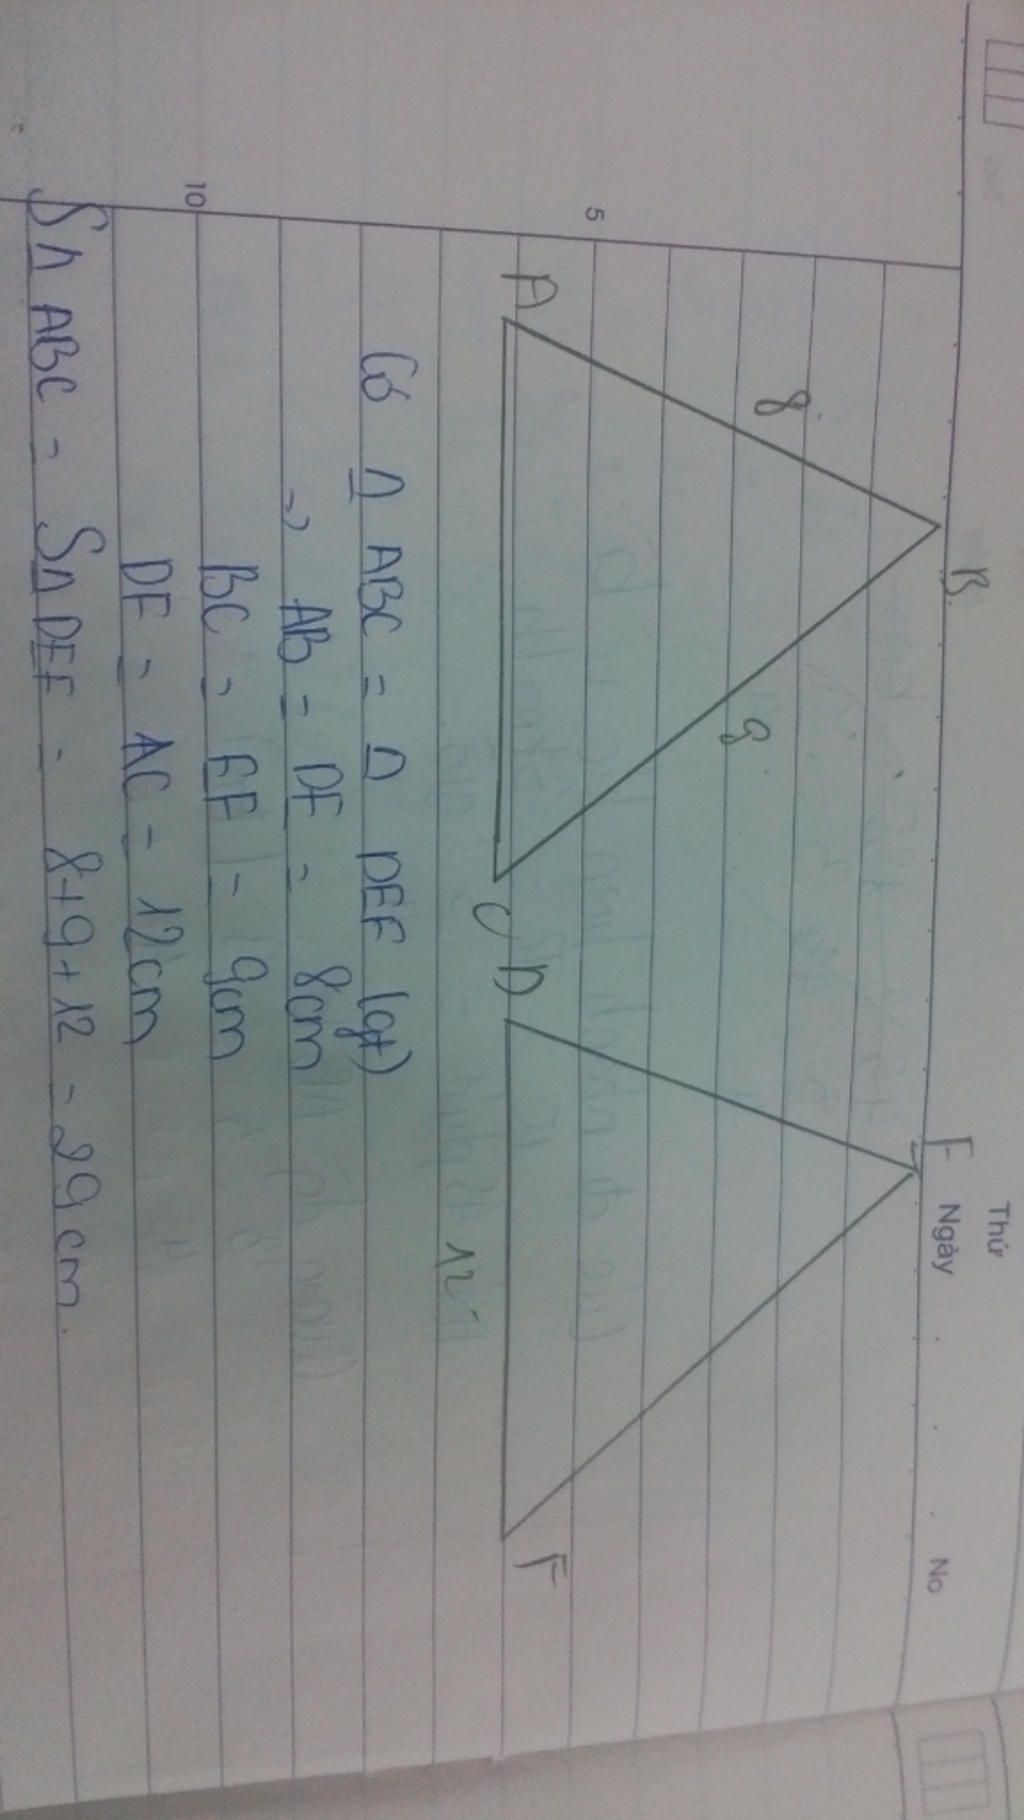 Thứ
Ngày
No
B
E
8
9
5
A
C
D
F
12
Có Δ ABC = Δ DEF (gt)
=> AB = DE = 8cm
BC = EF = 9cm
10
DF = AC = 12cm
SΔ ABC = SΔ DEF = 8+9+12 = 29 cm.